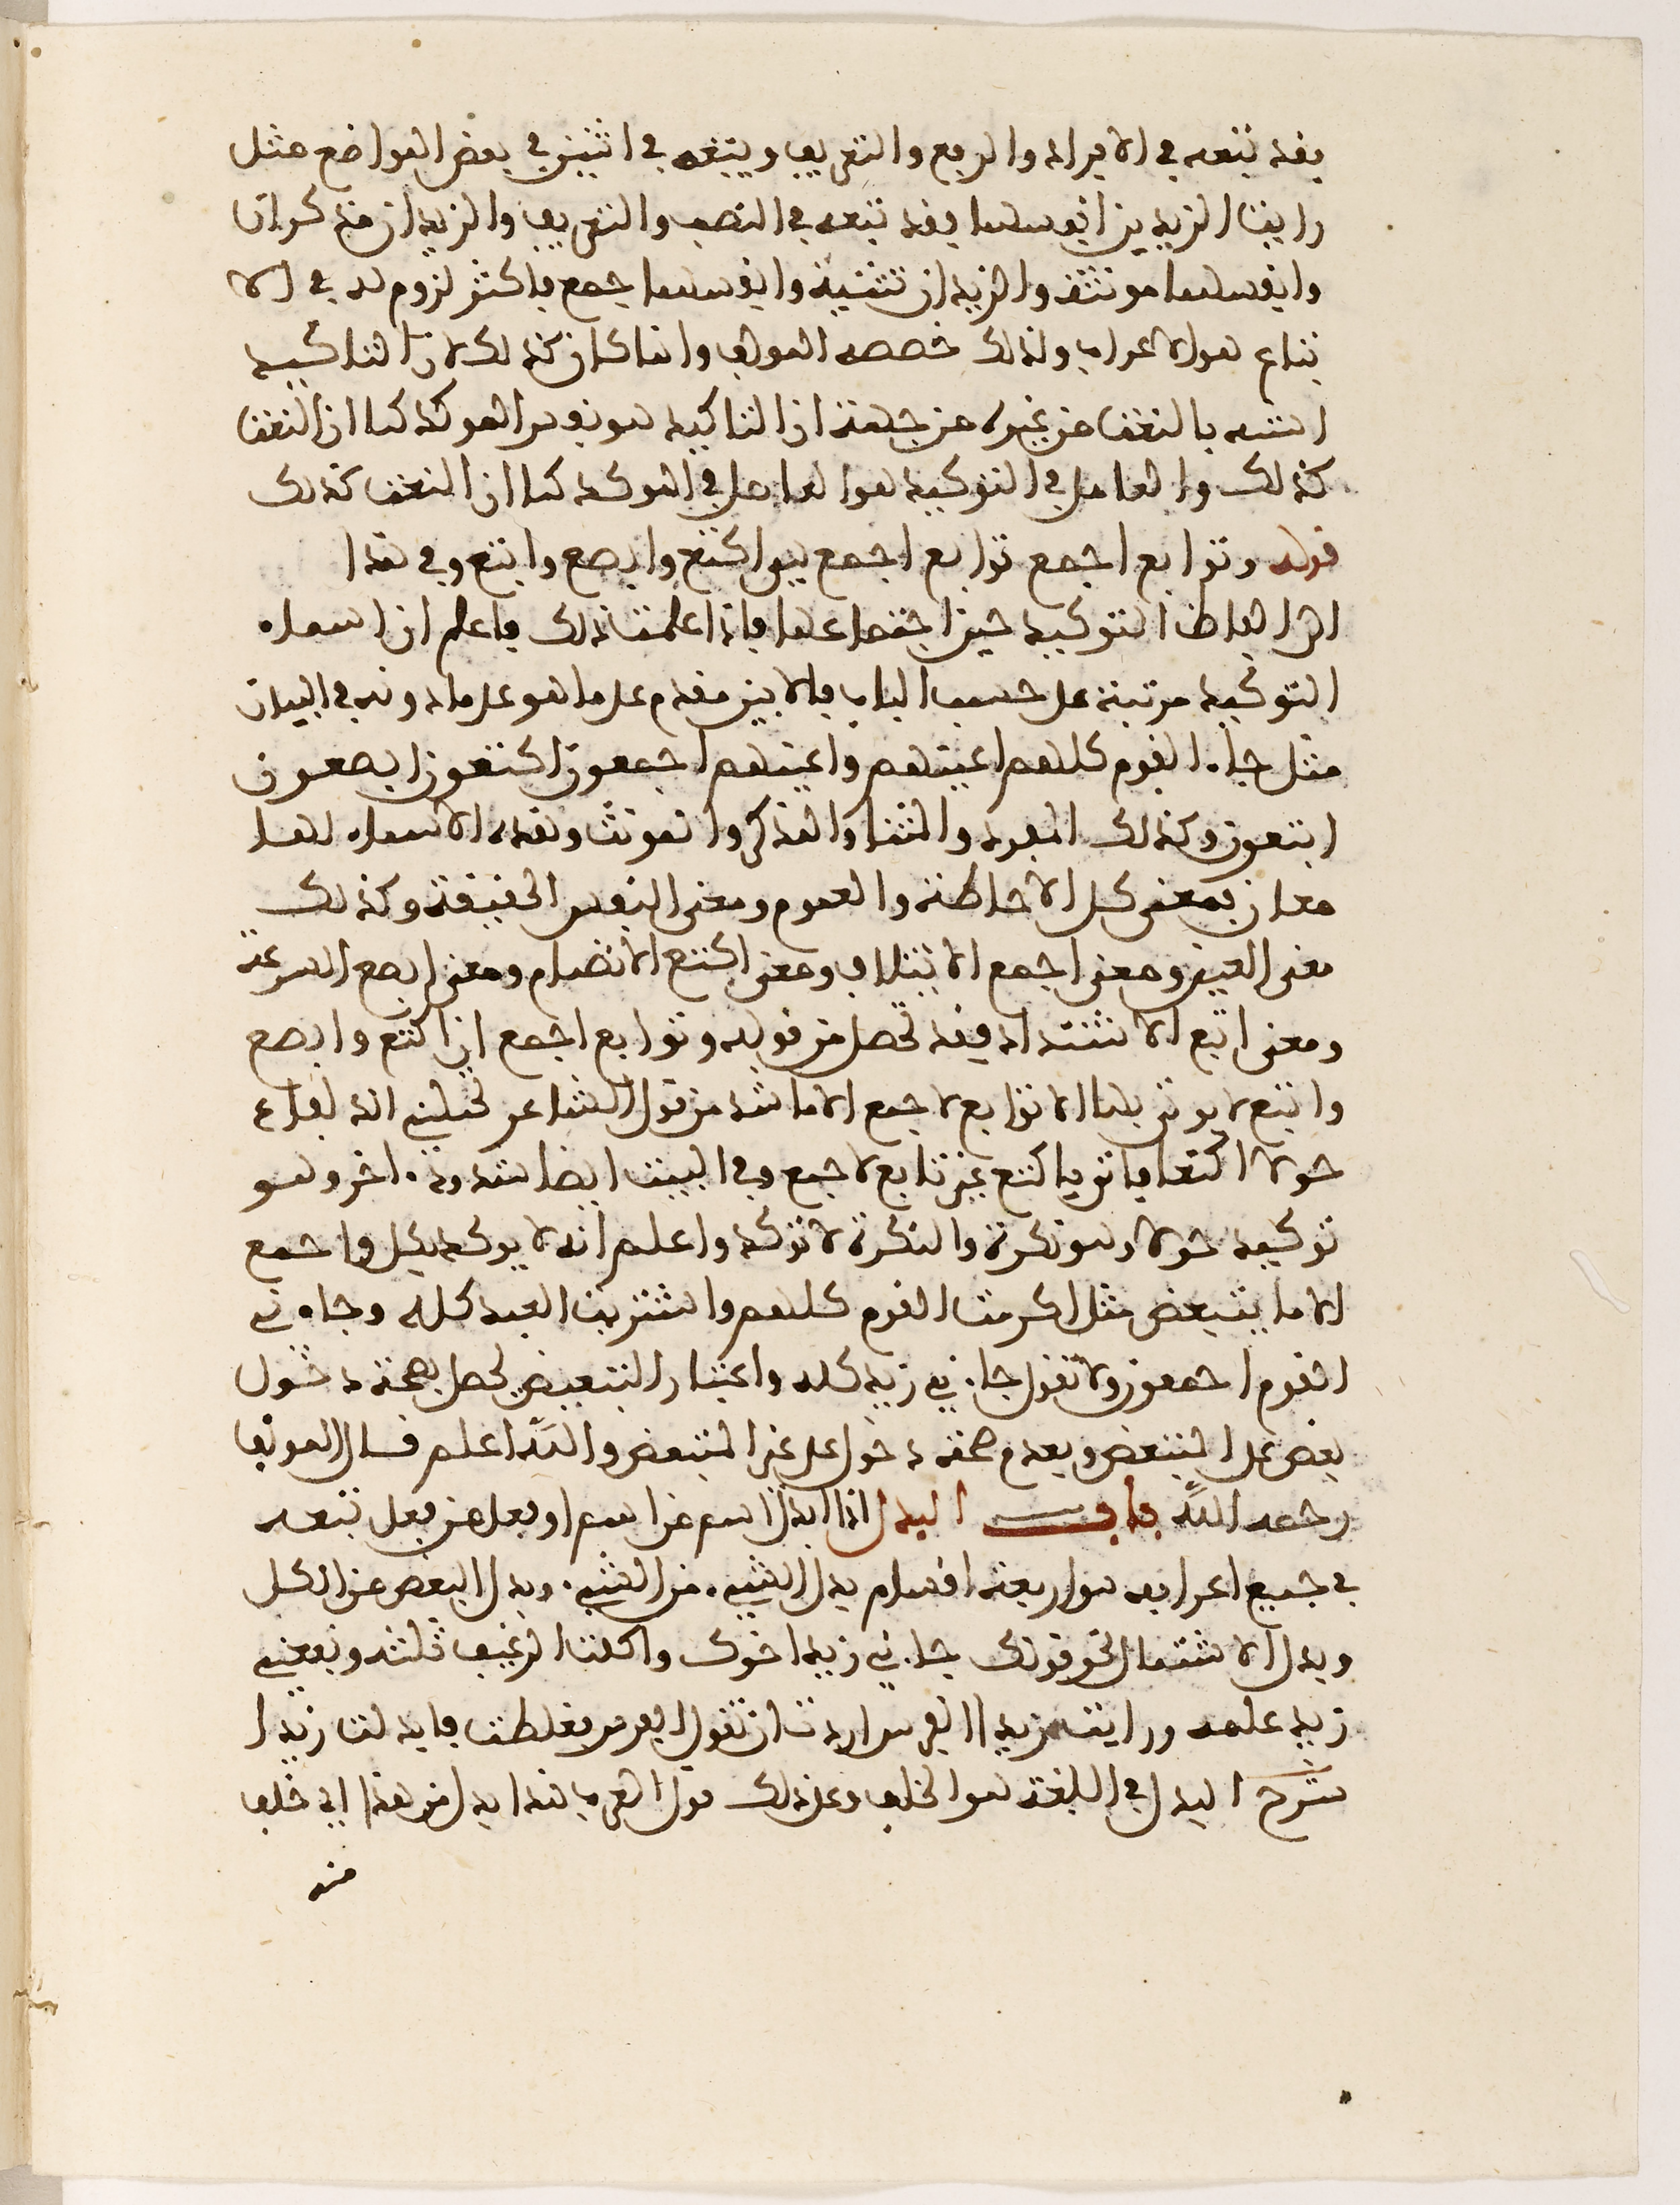 فقد تبعه في الافراد والرفع والتعريف ويتبعه في اثنين في بعض المواضع مثل
رايت الزيدين انفسهما فقد تبعه في النصب والتعريف والزيدان مذكران
وانفسهما مونثة والزيدان تثنية وانفسهما جمع فاكثر لزومه في الا
تباع هو الاعراب ولذلك خصصه المولف وانما كان كذلك لان التاكيد
اشبه بالنعت من غيره من جهة ان التاكيد هو نفس الموكد كما ان النعت
كذلك والعامل في التوكيد هو العامل في الموكد كما ان النعت كذلك
قوله وتوابع اجمع توابع اجمع هي اكتع وابصع وابتع وفي هذا
الى الفاظ التوكيد حين اجتماعها فاذا علمت ذلك فاعلم ان اسماء
التوكيد مرتبة على حسب الباب فالابين مقدم على ما هو على ما دونه في البيان
مثل جاء القوم كلهم اعينهم واعينهم اجمعون اكتعون ابصعون
ابتعون وكذلك المفرد والمثنا والمذكر والمونث وهذه الاسماء لها
معان فمعنى كل الاحاطة والعموم ومعنى النفس الحقيقة وكذلك
معنى العين ومعنى اجمع الائتلاف ومعنى اكتع الانضمام ومعنى ابصع السرعة
ومعنى ابتع الاشتداد فقد تحصل من قوله وتوابع اجمع ان اكتع وابصع
وابتع لا يوتى بها الا توابع لاجمع الا ما شذ من قول الشاعر تحملني الذلفاء
حولا اكتعا فاتى باكتع غير تابع لاجمع وفي البيت ايضا شذوذ ء اخر وهو
توكيد حولا وهو نكرة والنكرة لا توكد واعلم انه لا يوكد بكل واجمع
الا ما يتبعض مثل اكرمت القوم كلهم واشتريت العبد كله وجاء ني
القوم اجمعون ولا تقول جاءني زيد كله واعتبار التبعيض يحصل بصحة دخول
بعض على المتبعض وبعدم صحة دخول على غير المتبعض والله اعلم قال المولف
رحمه الله باب البدل اذا ابدل اسم من اسم او فعل من فعل تبعه
في جميع اعرابه هو اربعة اقسام بدل الشيء من الشيء وبدل البعض من الكل
وبدل الاشتمال نحو قولك جاءني زيد اخوك واكلت الرغيف ثلثه ونفعني
زيد علمه ورايت زيدا الفرس اردت ان تقول الفرس فغلطت فابدلت زيدا
شرح البدل في اللغة هو الخلف ومن ذلك قول العرب هذا بدل من هذا اي خلف
منه